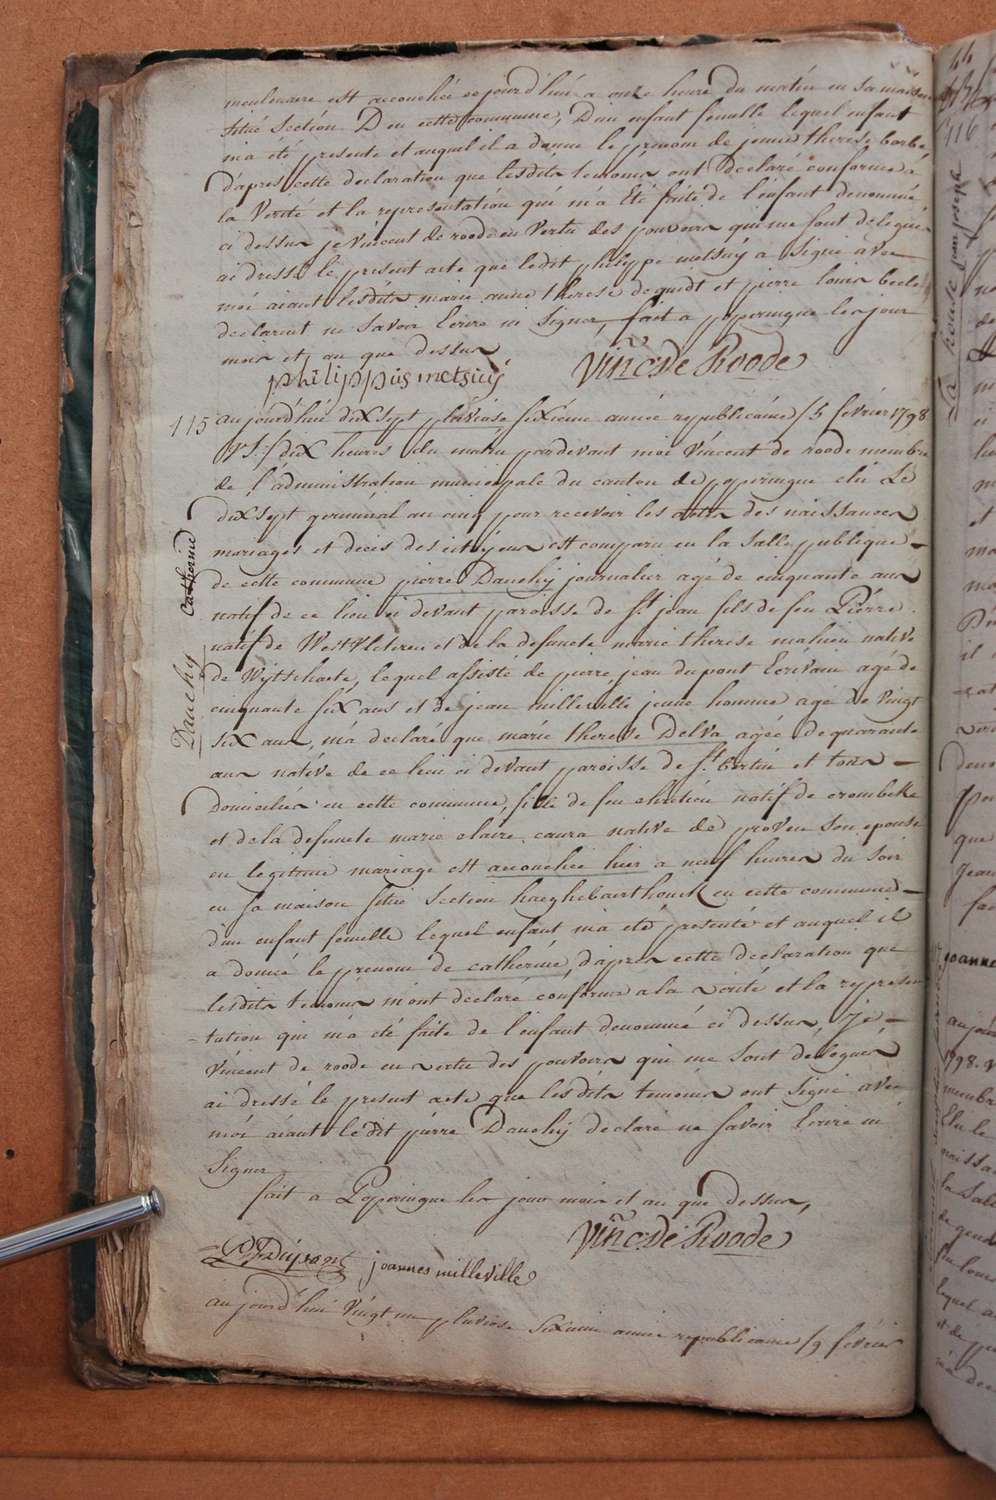 meulenaere est accouchée ce jourd'hui a onze heure du matin en sa maison
situé section D en cette commune, D'un enfant femelle lequel enfant
m'a été presente et auquel il a donne le prenom de jenne therese barbe
d'apres cette declaration que lesdits temoins ont declaré conforme a
la Verité et la representation qui m'a Eté faite de l'enfant denommé
ci dessus je vincent de roode en vertu des pouvoirs qui me sont delegués
ai dressé le present acte que ledit philippe metsuÿ a signé avec
moi aiant lesdits marie anne therese dequidt et pierre louis becle
declarent ne savoir Ecrire ni signer, fait a poperingue les jour
mois et an que dessus
philippus metsuÿ Vinc: De Roode
115 aujourd'hui dix sept pluviose sixieme année republicaine /5 fevrier 1798
VS:/ dix heures du matin pardevant moi Vincent de roode membre
de l'administration municipale du canton de poperingue elu Le
dix sept germinal an cinq pour recevoir les actes des naissances
mariages et décès des citoÿens est comparu en la salle publique
de cette commune pierre Dauchÿ journalier agé de cinquante ans
natif de ce lieu ci devant paroisse de St. jean fils de feu Piérre
natif de WestVleteren et de la defuncte marie therese mahieu native
de Wÿtschaete, lequel assisté de pierre jean dupont Ecrivain agé de
cinquante six ans et de jean milleville jeune homme agé de Vingt
six ans, m'a declaré que marie therese Delva agée de quarante
ans native de ce lieu ci devant paroisse de St. bertin et tous
domiciliés en cette commune, fille de feu chretien natif de crombeke
et de la defuncte marie claire caura native de proven son epouse
en legitime mariage est accouchée hier a neuf heures du soir
en sa maison situé section haeghebaerthoeck en cette commune
d'un enfant femelle lequel enfant m'a eté presenté et auquel il
a donné le prenom de catherine, d'apres cette declaration que
lesdits temoins m'ont declaré conforme a la verité et la represen
tation qui m'a eté faite de l'enfant denommé ci dessus, je
Vincent de roode en vertu des pouvoirs qui me sont delegués
ai dressé le present acte que lesdits temoins ont signé avec
moi aiant ledit piérre Dauchÿ declare ne savoir Ecrire ni
signer
fait a Poperingue les jour mois et an que dessus,
Vinc: De Roode
joannes milleville
aujourd'hui Vingt un pluviose sixieme année republicaine /9 fevrier
Dauchy Catherine
116
La House jean joseph
joanne